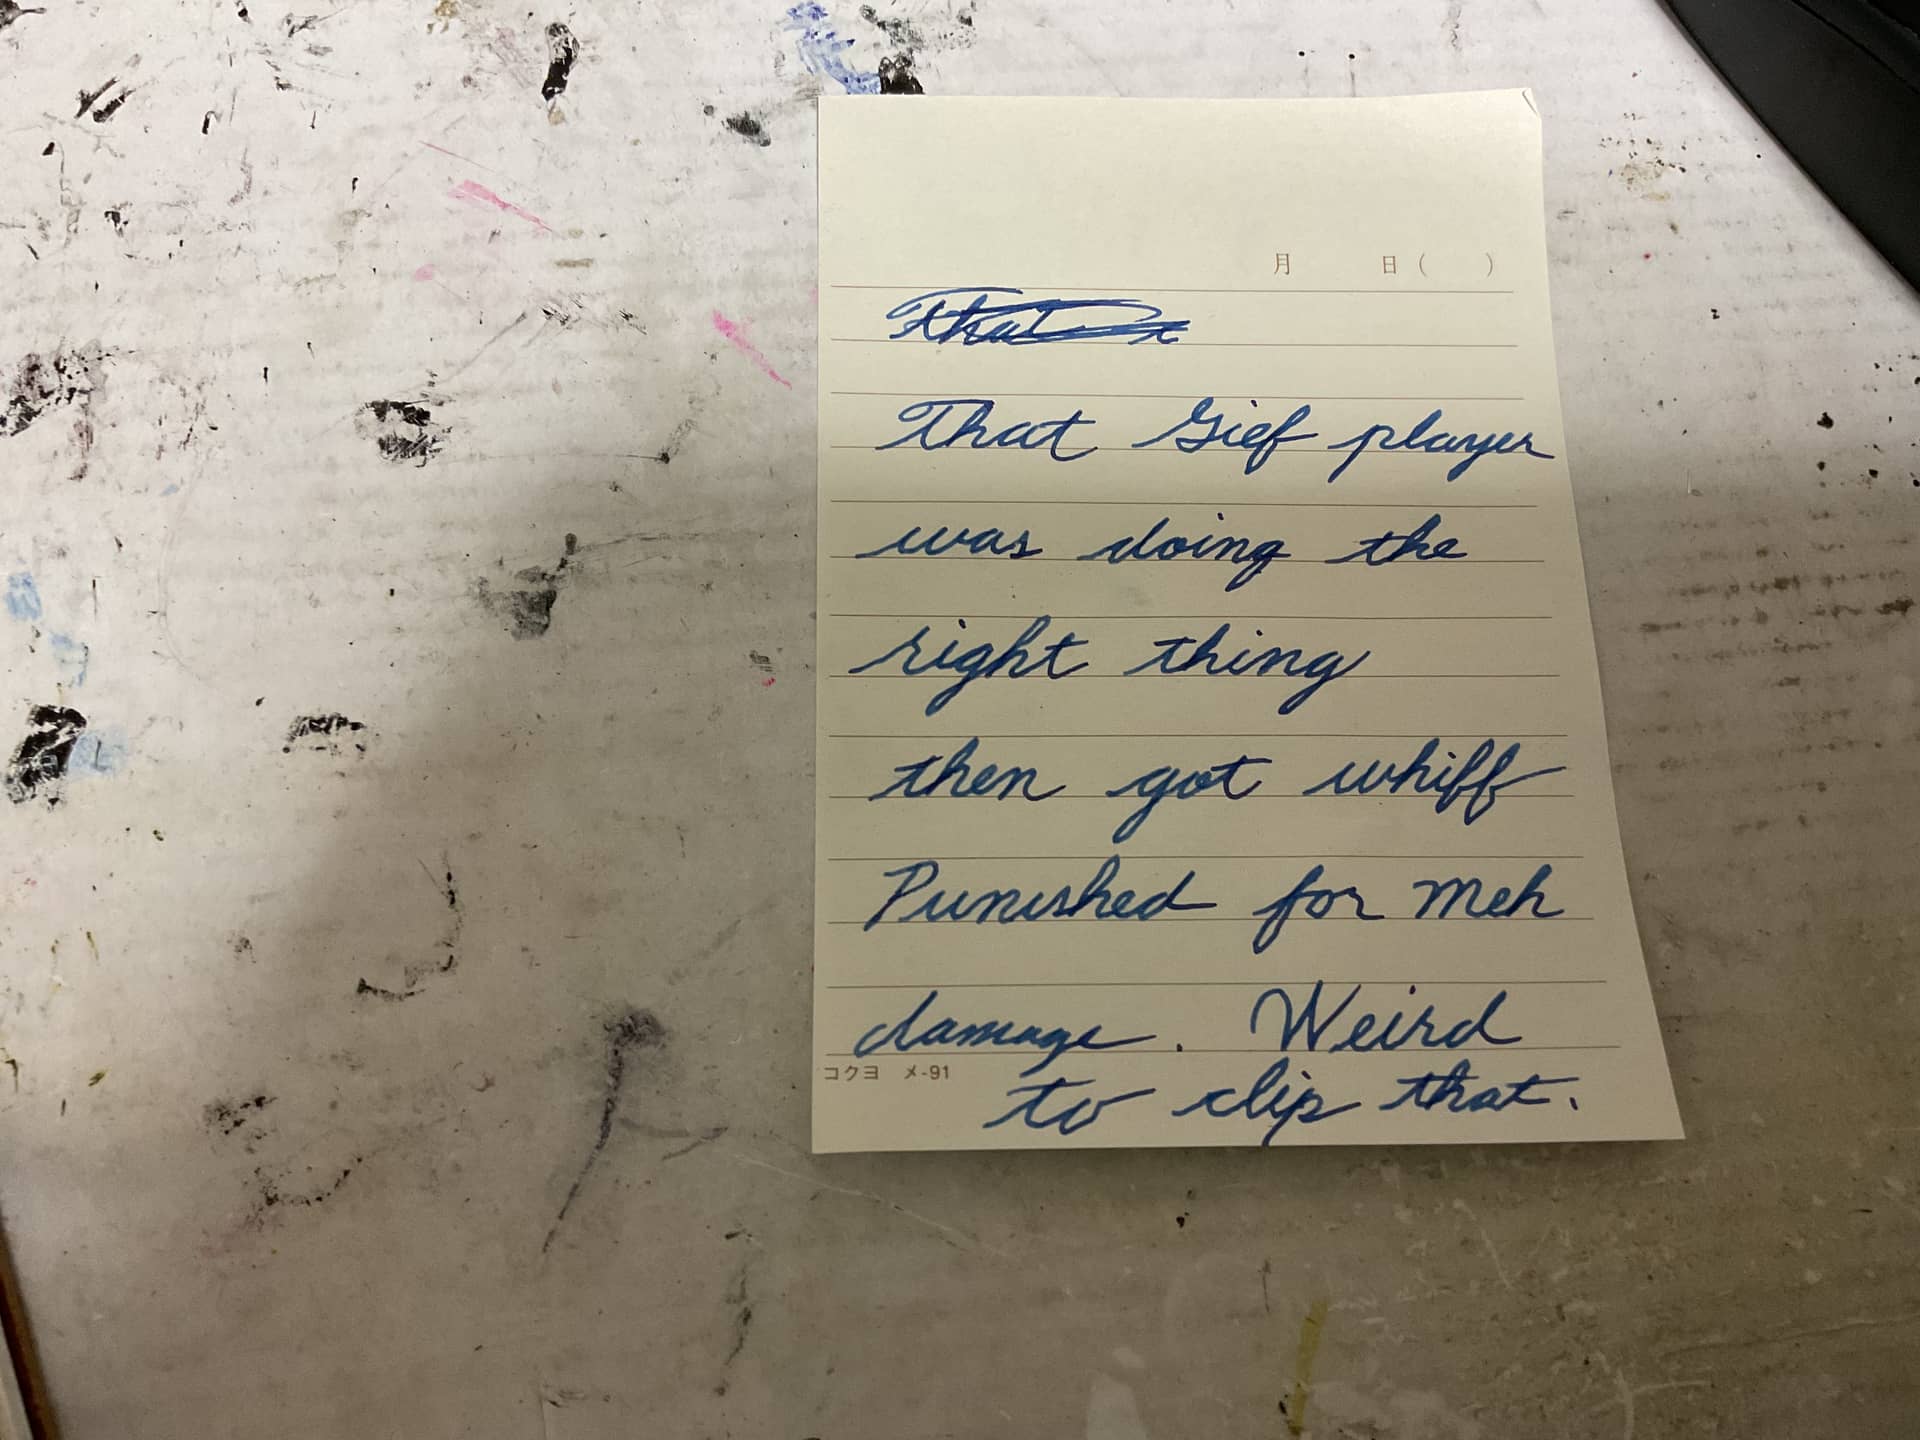 月 日( )
That
That Gief player
was doing the
right thing
then got whiff
Punished for meh
damage. Weird
コクヨ メ-91
to clip that.